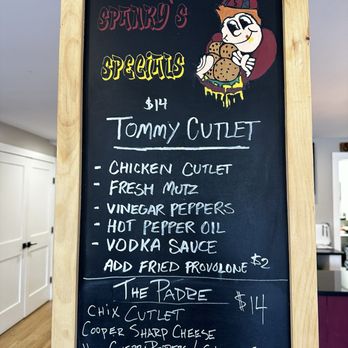 SPANKY'S
SPECIALS
$14
TOMMY CUTLET
- CHICKEN CUTLET
- FRESH MUTZ
- VINEGAR PEPPERS
- HOT PEPPER OIL
- VODKA SAUCE
ADD FRIED PROVOLONE $2
THE PADRE $14
CHIX CUTLET
COOPER SHARP CHEESE